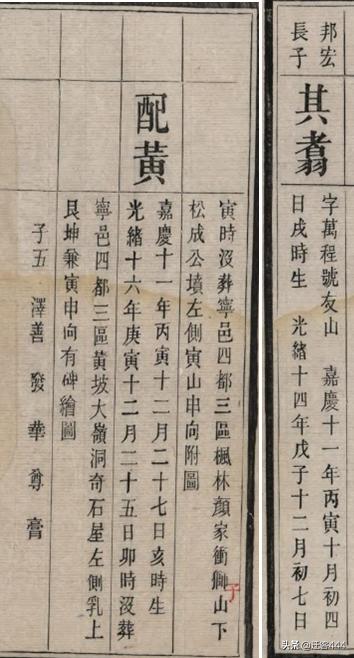 邦宏
長子
其翥
字萬程號友山 嘉慶十一年丙寅十月初四
日戌時生 光緒十四年戊子十二月初七日
寅時沒葬寧邑四都三區楓林顔家衝獅山下
松成公墳左側寅山申向附圖
配黃
嘉慶十一年丙寅十二月二十七日亥時生
光緒十六年庚寅十二月二十五日卯時沒葬
寧邑四都三區黃坡大嶺洞奇石屋左側乳上
艮坤兼寅申向有碑繪圖
子五 澤善 發 華 尊 膏
予
头条 @汪容444